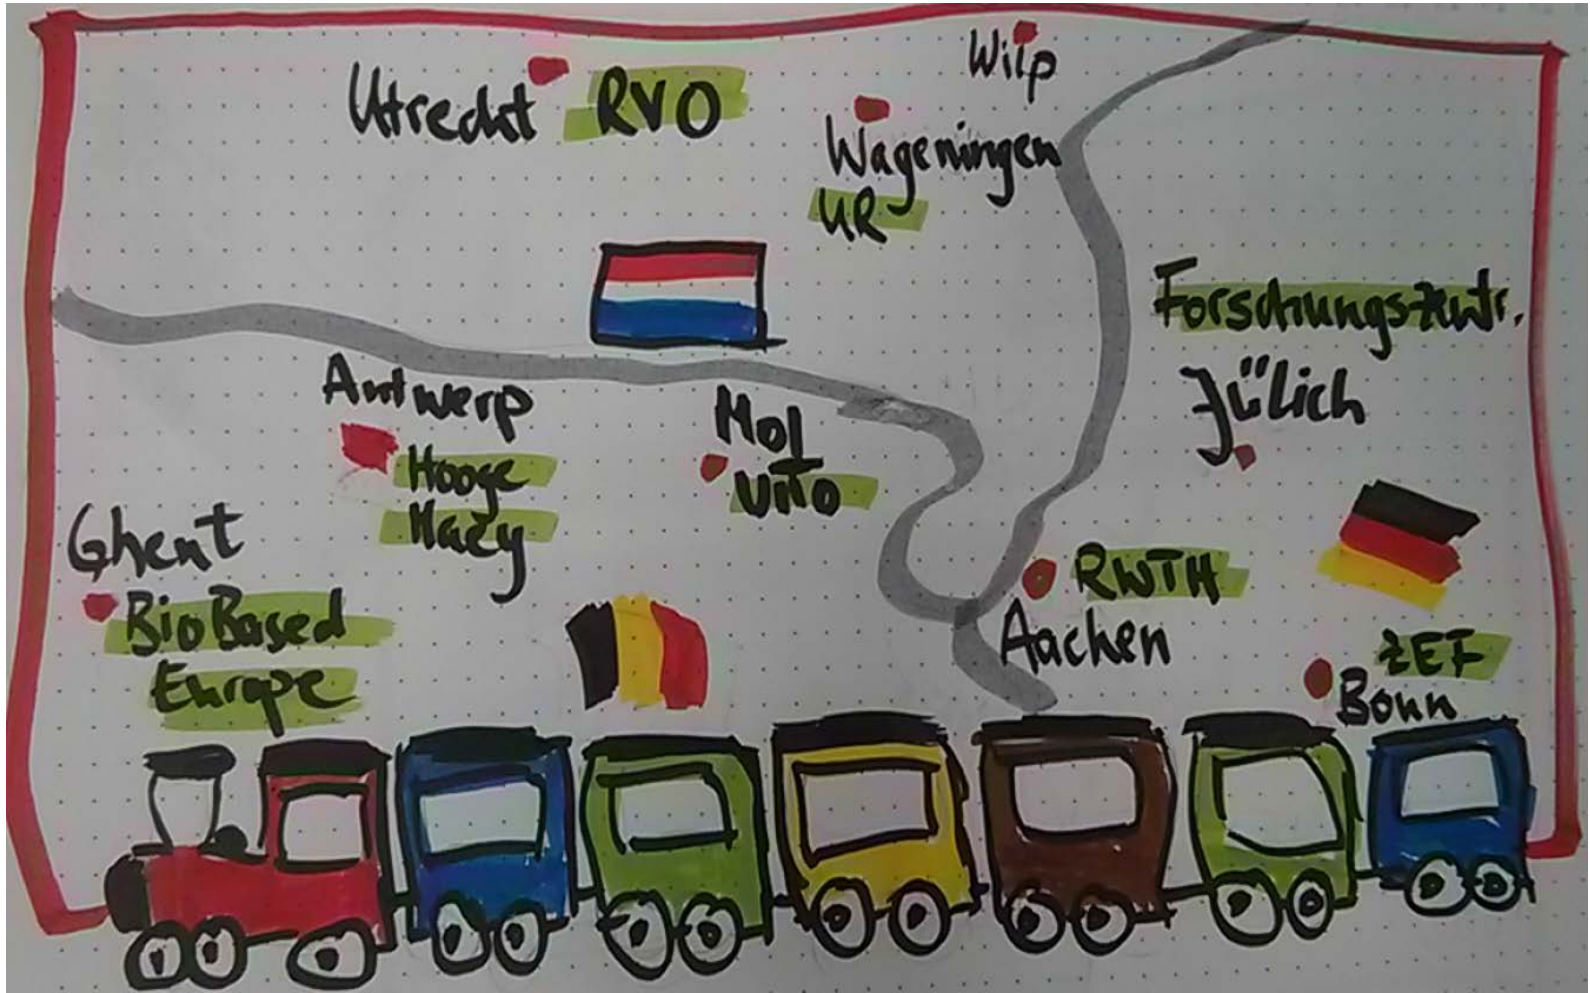 Wilp
Utrecht RVO
Wageningen
UR
Forschungszntr.
Jülich
Antwerp
Hooge
Maey
Mol
VITO
Ghent
BioBased
Europe
RWTH
Aachen
ZEF
Bonn